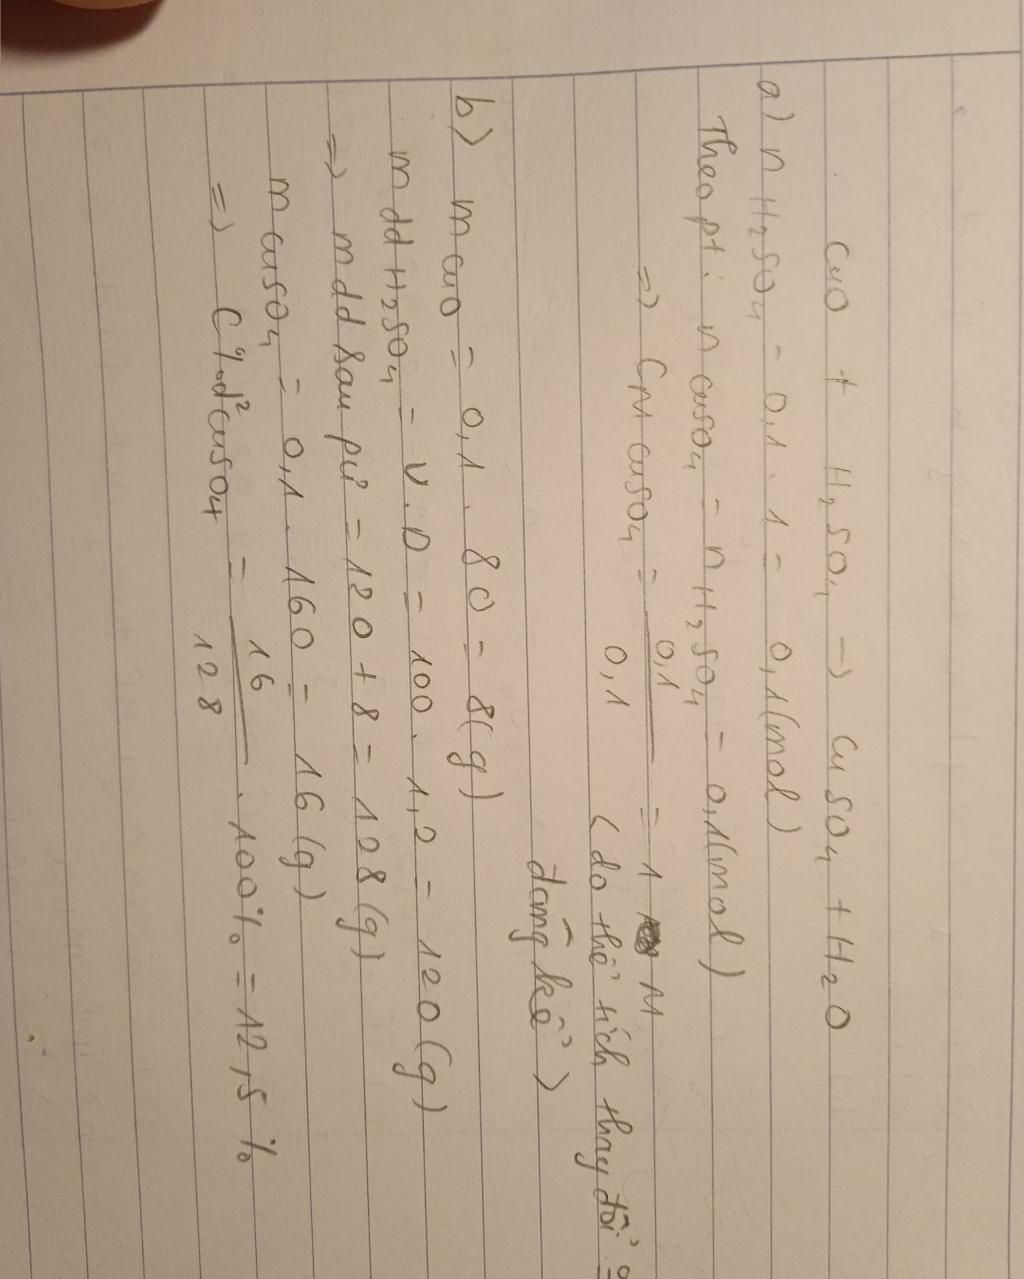 CuO + H₂SO₄ → CuSO₄ + H₂O
a) n H₂SO₄ = 0,1 . 1 = 0,1 (mol)
Theo pt : n CuSO₄ = n H₂SO₄ = 0,1 (mol)
=> CM CuSO₄ = 0,1 / 0,1 = 1 M
(do thể tích thay đổi
đáng kể)
b) m CuO = 0,1 . 80 = 8 (g)
m dd H₂SO₄ = V . D = 100 . 1,2 = 120 (g)
=> m dd sau pứ = 120 + 8 = 128 (g)
m CuSO₄ = 0,1 . 160 = 16 (g)
=> C% d² CuSO₄ = 16 / 128 . 100% = 12,5 %